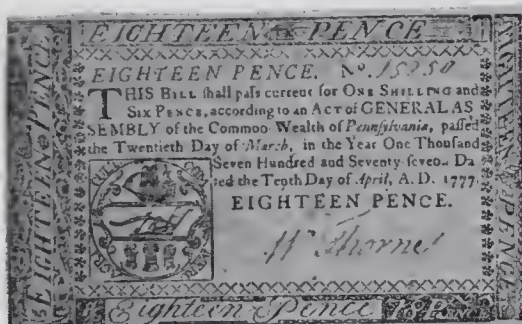 EIGHTEEN PENCE
EIGHTEEN PENCE
EIGHTEEN PENCE. No. 15850
THIS BILL ſhall paſs current for ONE SHILLING and
SIX PENCE, according to an ACT of GENERAL AS
SEMBLY of the Common Wealth of Pennſylvania, paſſed
the Twentieth Day of March, in the Year One Thouſand
Seven Hundred and Seventy-ſeven. Da
ted the Tenth Day of April, A.D. 1777.
EIGHTEEN PENCE.
Wm Thorne
EIGHTEEN PENCE
Eighteen Pence 18 PENCE